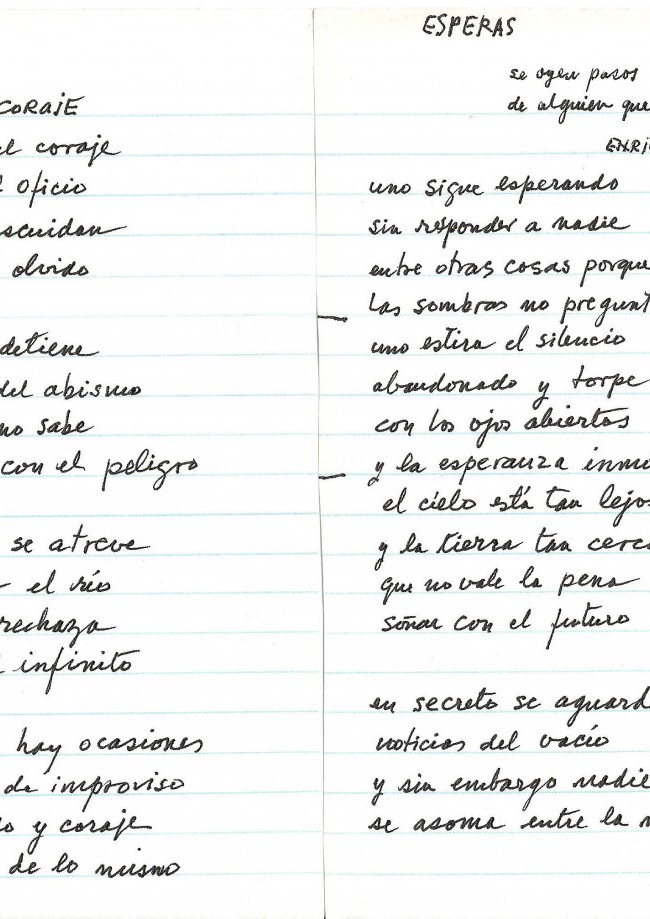 CORAJE
el coraje
oficio
scuidan
olvido
detiene
del abismo
no sabe
con el peligro
se atreve
el río
rechaza
infinito
hay ocasiones
de improviso
o y coraje
de lo mismo
ESPERAS
se oyen pasos
de alguien que
ENRI
uno sigue esperando
sin responder a nadie
entre otras cosas porque
las sombras no pregunt
uno estira el silencio
abandonado y torpe
con los ojos abiertos
y la esperanza inmo
el cielo está tan lejos
y la tierra tan cerca
que no vale la pena
soñar con el futuro
en secreto se aguard
noticias del vacío
y sin embargo nadie
se asoma entre la n